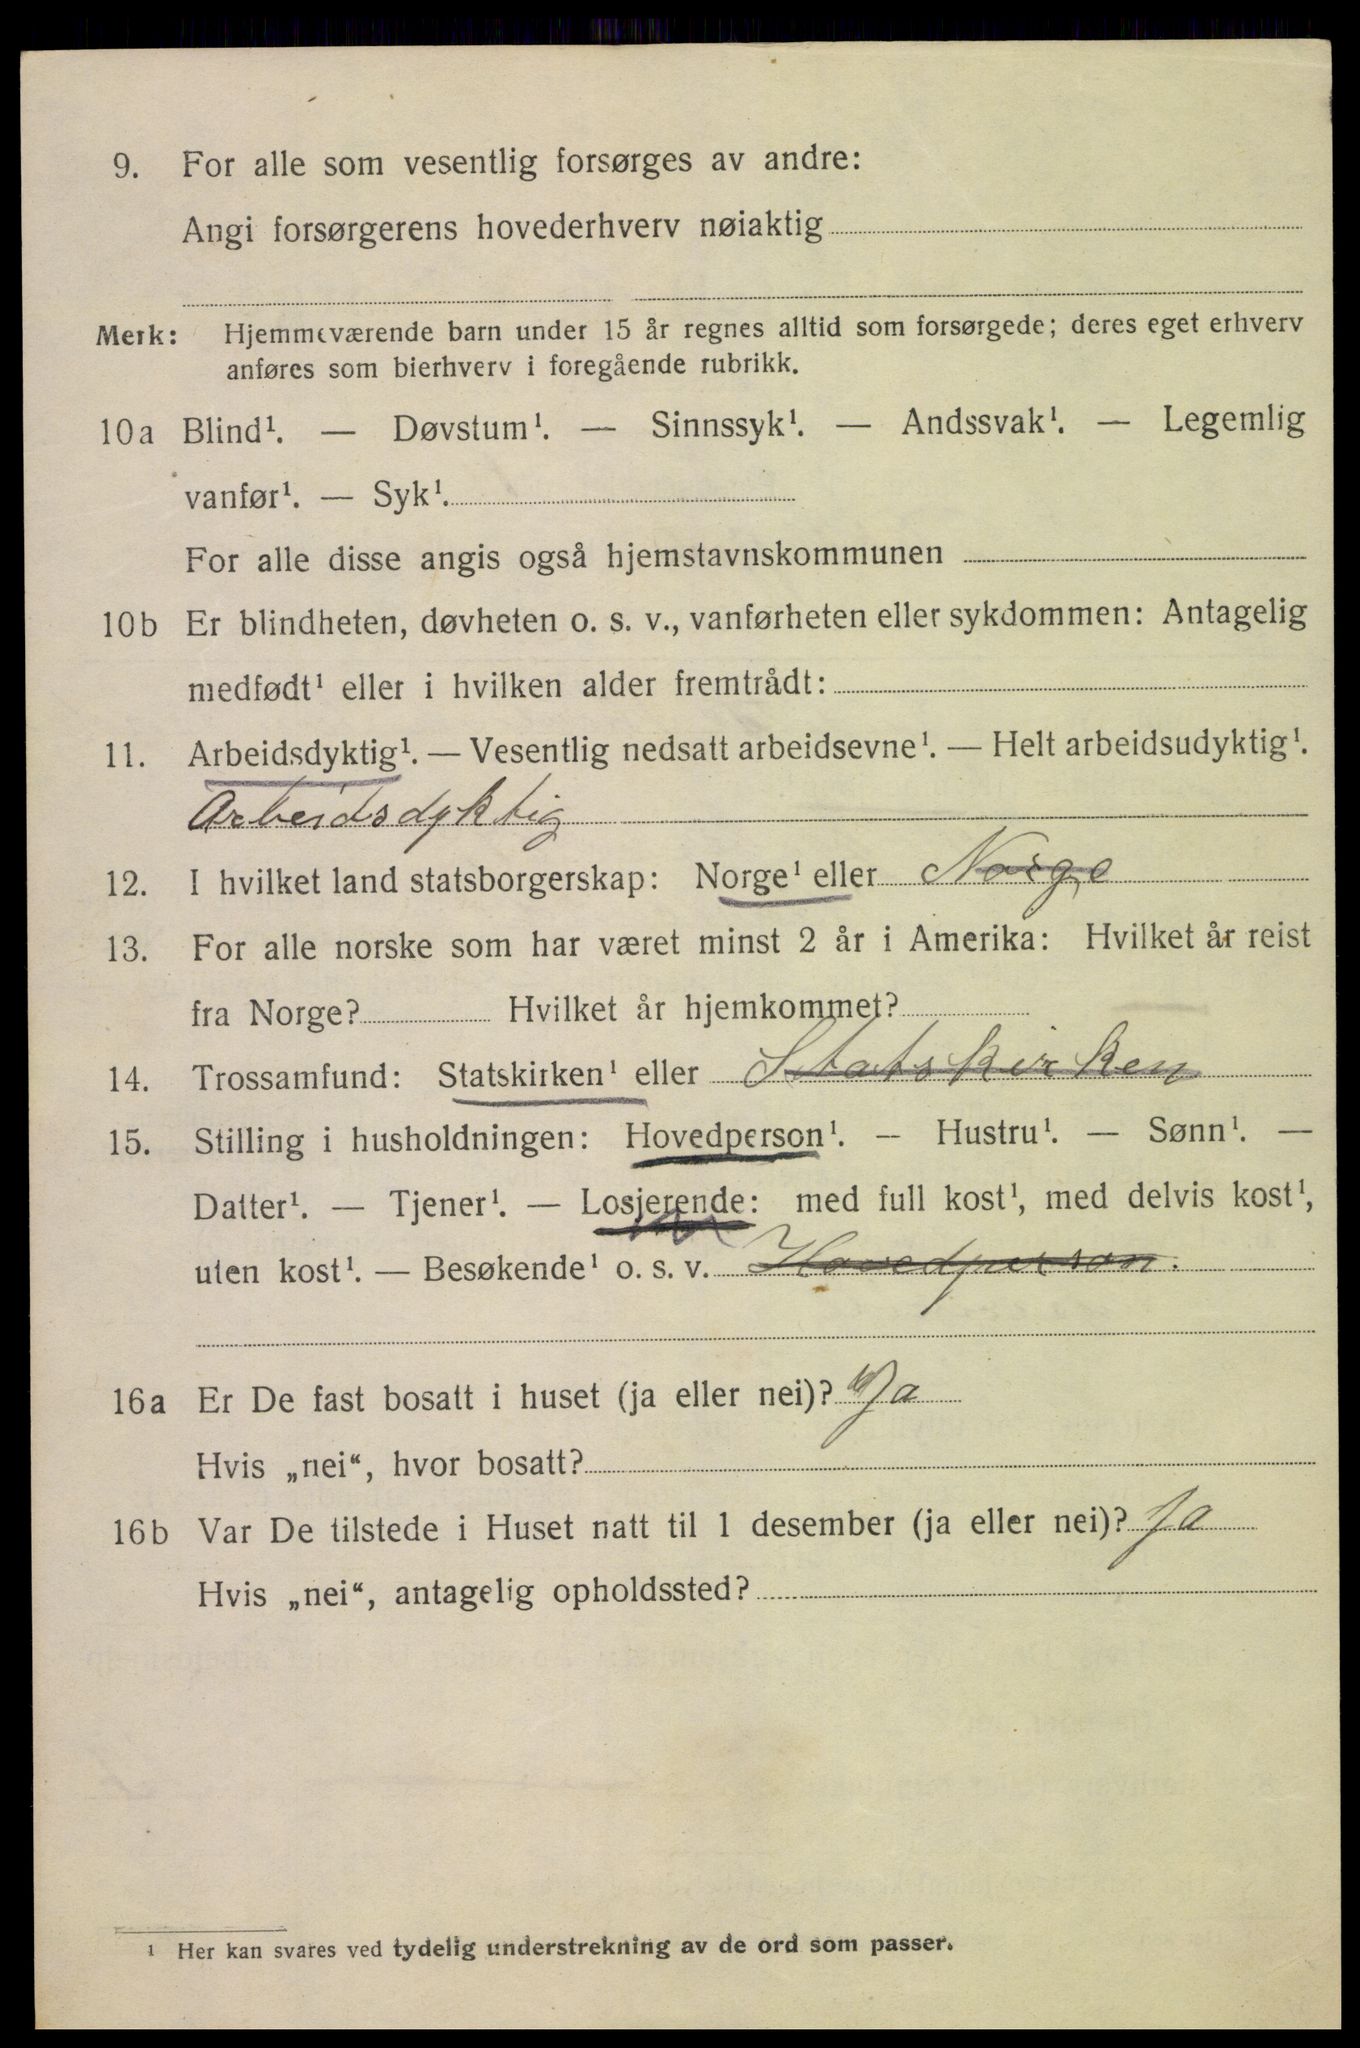 9. For alle som vesentlig forsørges av andre:
Angi forsørgerens hovederhverv nøiaktig
Merk: Hjemmeværende barn under 15 år regnes alltid som forsørgede; deres eget erhverv
anføres som bierhverv i foregående rubrikk.
10a Blind¹. — Døvstum¹. — Sinnssyk¹. — Andssvak¹. — Legemlig
vanfør¹. — Syk¹.
For alle disse angis også hjemstavnskommunen
10b Er blindheten, døvheten o. s. v., vanførheten eller sykdommen: Antagelig
medfødt¹ eller i hvilken alder fremtrådt:
11. Arbeidsdyktig¹. — Vesentlig nedsatt arbeidsevne¹. — Helt arbeidsudyktig¹.
Arbeidsdyktig
12. I hvilket land statsborgerskap: Norge¹ eller Norge
13. For alle norske som har været minst 2 år i Amerika: Hvilket år reist
fra Norge? Hvilket år hjemkommet?
14. Trossamfund: Statskirken¹ eller Statskirken
15. Stilling i husholdningen: Hovedperson¹. — Hustru¹. — Sønn¹. —
Datter¹. — Tjener¹. — Losjerende: med full kost¹, med delvis kost¹,
uten kost¹. — Besøkende¹ o. s. v. Hovedperson.
16a Er De fast bosatt i huset (ja eller nei)? Ja
Hvis „nei“, hvor bosatt?
16b Var De tilstede i Huset natt til 1 desember (ja eller nei)? Ja
Hvis „nei“, antagelig opholdssted?
¹ Her kan svares ved tydelig understrekning av de ord som passer.